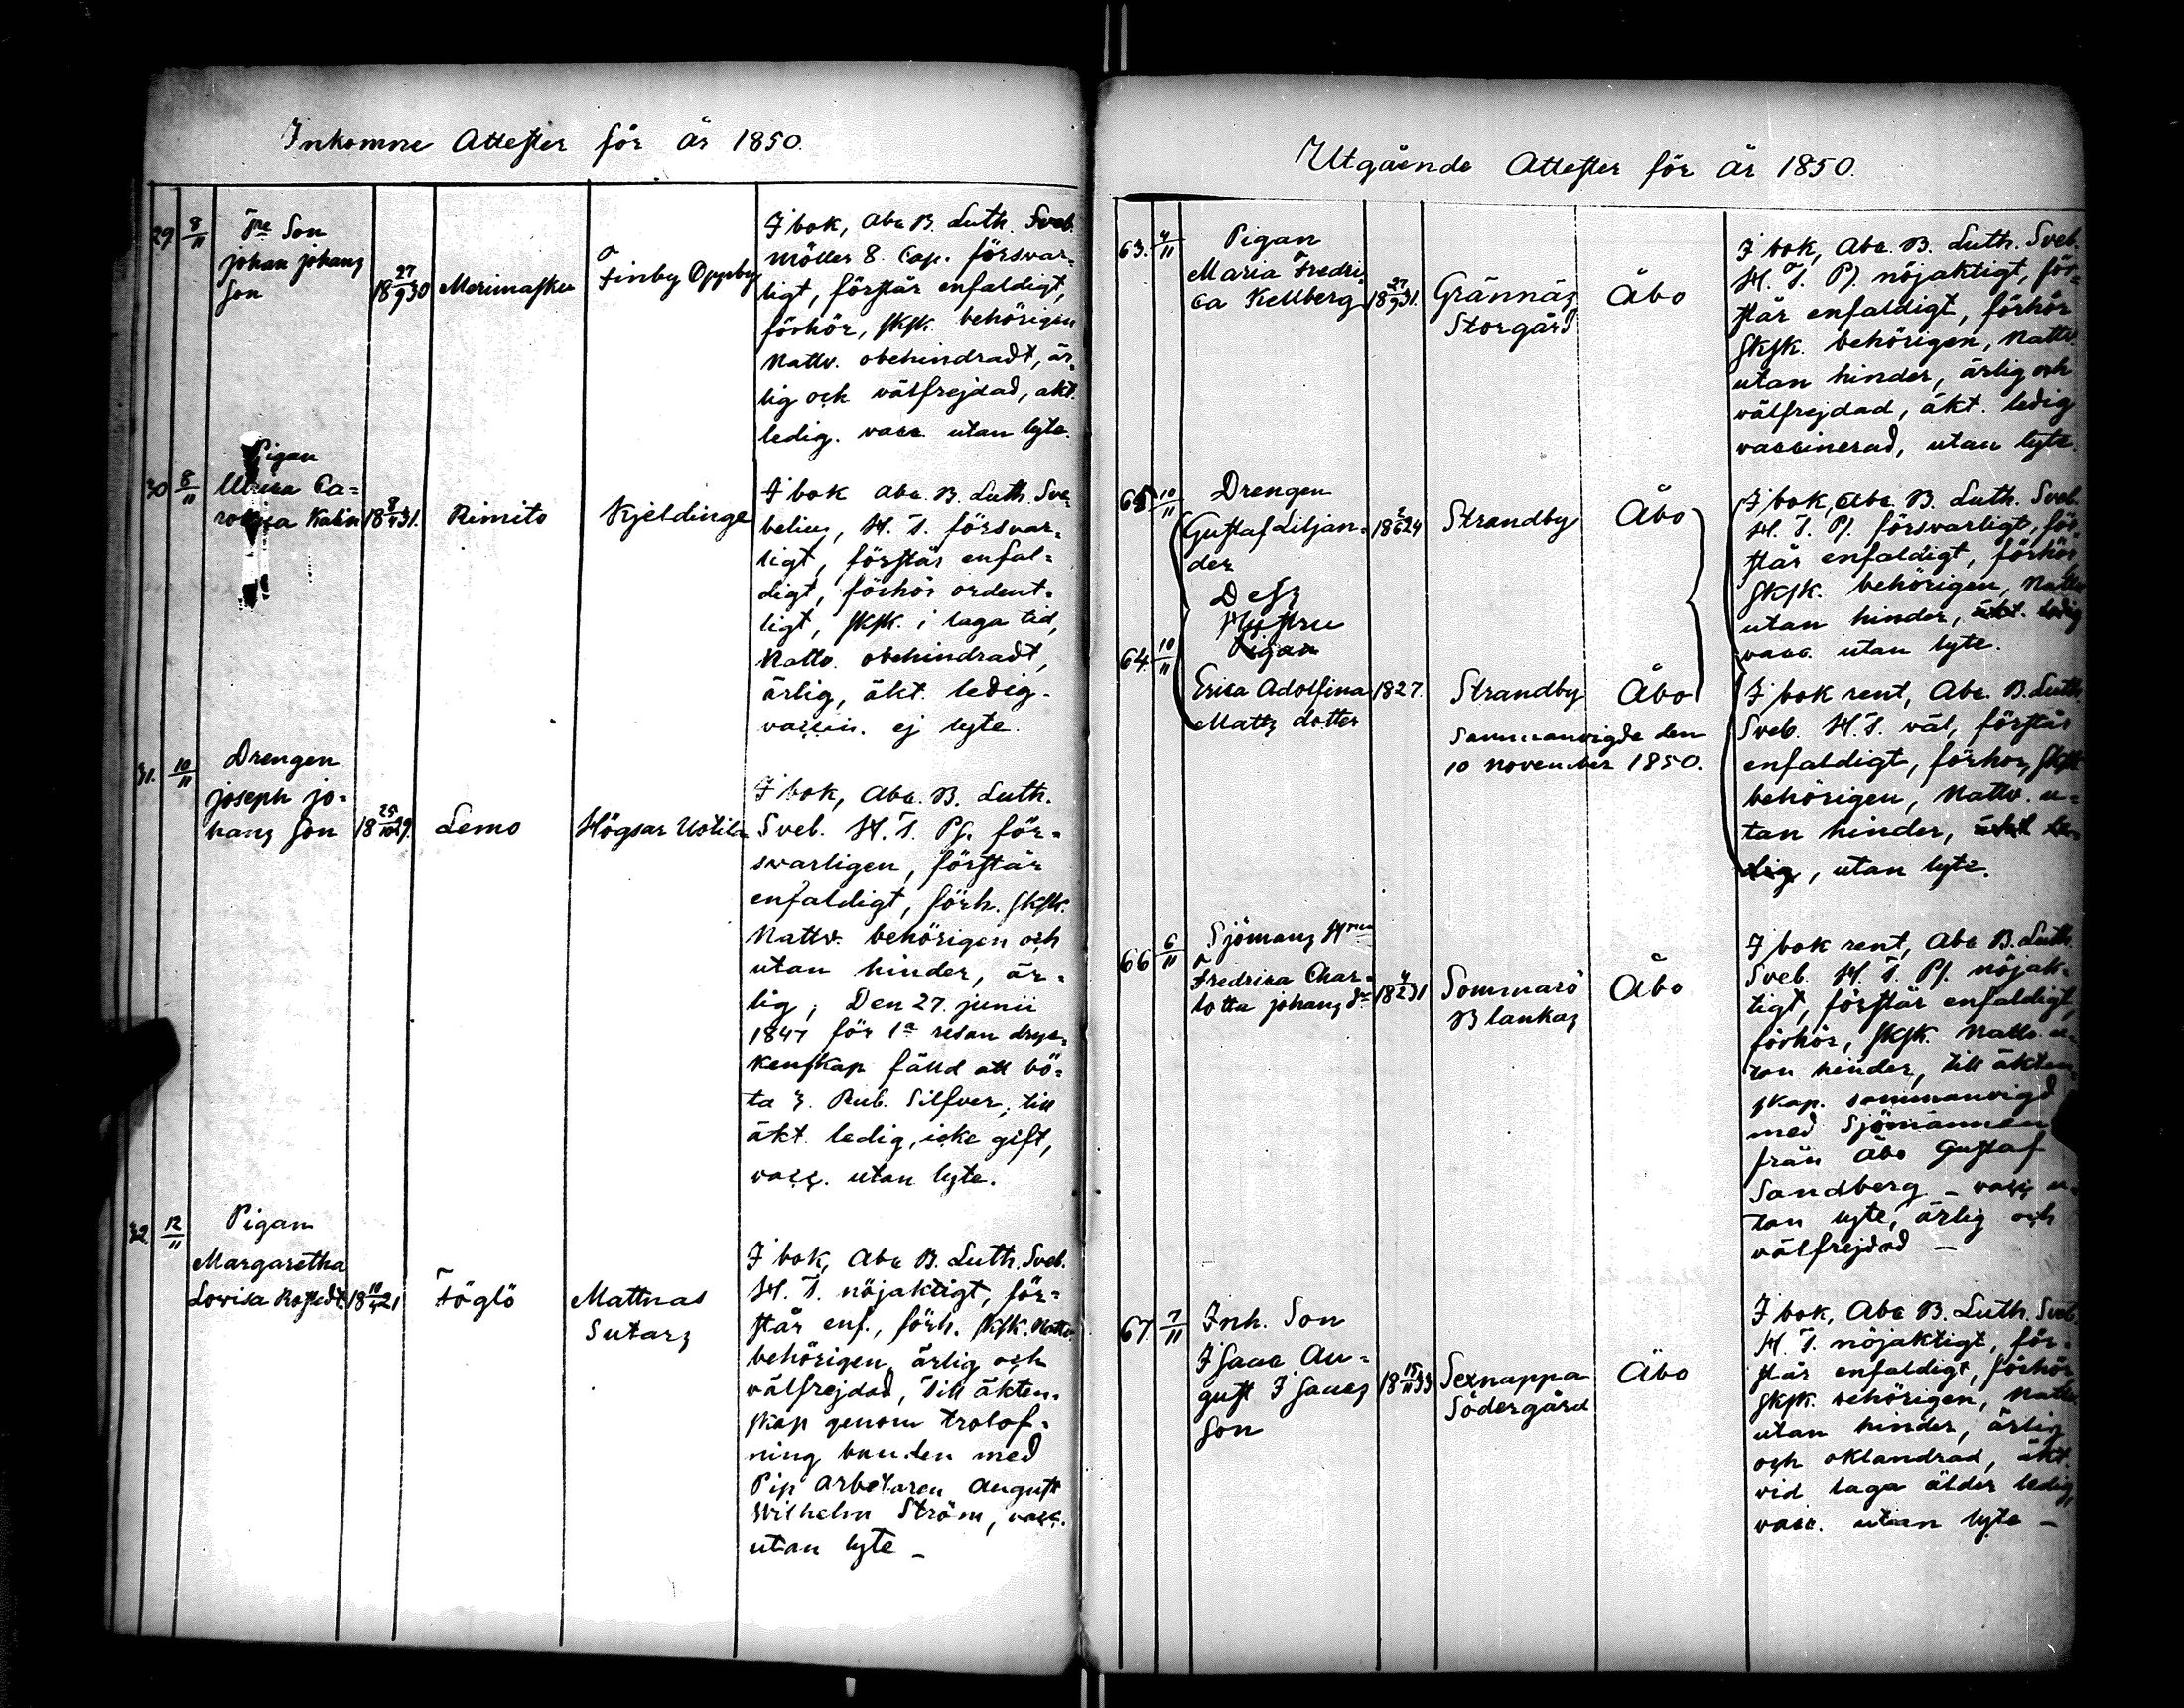 Inkomne Attester för år 1850.
29 8/11 Jne Son
johan johans
Son
18 27/9 30 Merimasku
Finby Oppsby
I bok, Abc B. Luth. Sveb.
möller 8. Cap. försvar=
ligt, förstår enfaldigt,
förhör, sksk. behörigen
Nattv. obehindradt, är=
lig och välfrejdad, äkt.
ledig. vacc. utan lyte.
30 8/11 Pigan
Ulrica Ca=
rolina Kalin 18 31. Rimito Kjeldinge
I bok Abc. B. Luth. Sve=
belius, H. T. försvar=
ligt, förstår enfal=
digt, förhör ordent=
ligt, sksk. i laga tid,
Nattv. obehindradt,
ärlig, äkt. ledig.
vaccin. ej lyte.
31. 10/11 Drengen
joseph jo=
hans Son 18 25/10 29. Lemo Högsar Uotila
I bok, Abc. B. Luth.
Sveb. H. T. Ps. för=
svarligen, förstår
enfaldigt, förh. sksk.
Nattv. behörigen och
utan hinder, är=
lig, Den 27. junii
1847 för 1a resan dryc=
kenskap fälld att bö=
ta 3. Rub. Silfver, till
äkt. ledig, icke gift,
vacc. utan lyte.
32 12/11 Pigan
Margaretha
Lovisa Rostedt 18 21 Föglö Mattnas
Sutars
I bok, Abc B. Luth. Sveb.
H. T. nöjaktigt, för=
står enf., förh. sksk. Nattv
behörigen, ärlig och
välfrejdad, Till äkten=
skap genom trolof=
ning bunden med
Pip arbetaren August
Wilhelm Ström, vacc.
utan lyte –
Utgående Attester för år 1850.
63. 4/11 Pigan
Maria Fredri=
ca Kellberg 18 27/9 31. Grännäs
Storgård
Åbo
I bok, Abc. B. Luth. Sveb.
H. T. Ps. nöjaktigt, för=
står enfaldigt, förhör
sksk. behörigen, Nattv.
utan hinder, ärlig och
välfrejdad, äkt. ledig
vaccinerad, utan lyte.
10/11 Drengen
Gustaf Liljan=
der
18 2/6 24 Strandby Åbo
I bok, Abc. B. Luth. Sveb.
H. T. Ps. försvarligt, för=
står enfaldigt, förhör
sksk. behörigen, Nattv
utan hinder, äkt. ledig
vacc. utan lyte.
Dess
Hustru
Pigan
64. 10/11
Erica Adolfina 1827. Strandby Åbo
Matts dotter
Sammanvigde den
10 november 1850.
I bok rent, Abc. B. Luth.
Sveb. H. T. väl, förstår
enfaldigt, förhör, sksk
behörigen, Nattv. u=
tan hinder, äkt le=
dig, utan lyte.
66 6/11 Sjömans Hrun
Fredrica Char=
lotta johans dr 18 4/2 31 Sommarö
Blankas
Åbo
I bok rent, Abc B. Luth.
Sveb. H. T. Ps. nöjak=
tigt, förstår enfaldigt,
förhör, sksk. Nattv. u=
tan hinder, till äkten=
skap. sammanvigd
med Sjömannen
från Åbo Gustaf
Sandberg – vacc u=
tan lyte, ärlig och
välfrejdad –
67. 7/11 Inh. Son
Isaac Au=
gust Isaacs
Son
18 15/11 33 Sexnappa
Södergård
Åbo
I bok, Abc B. Luth. Sveb.
H. T. nöjaktigt, för=
står enfaldigt, förhör
sksk. behörigen, Nattv.
utan hinder, ärlig
och oklandrad, äkt.
vid laga ålder ledig,
vacc. utan lyte –